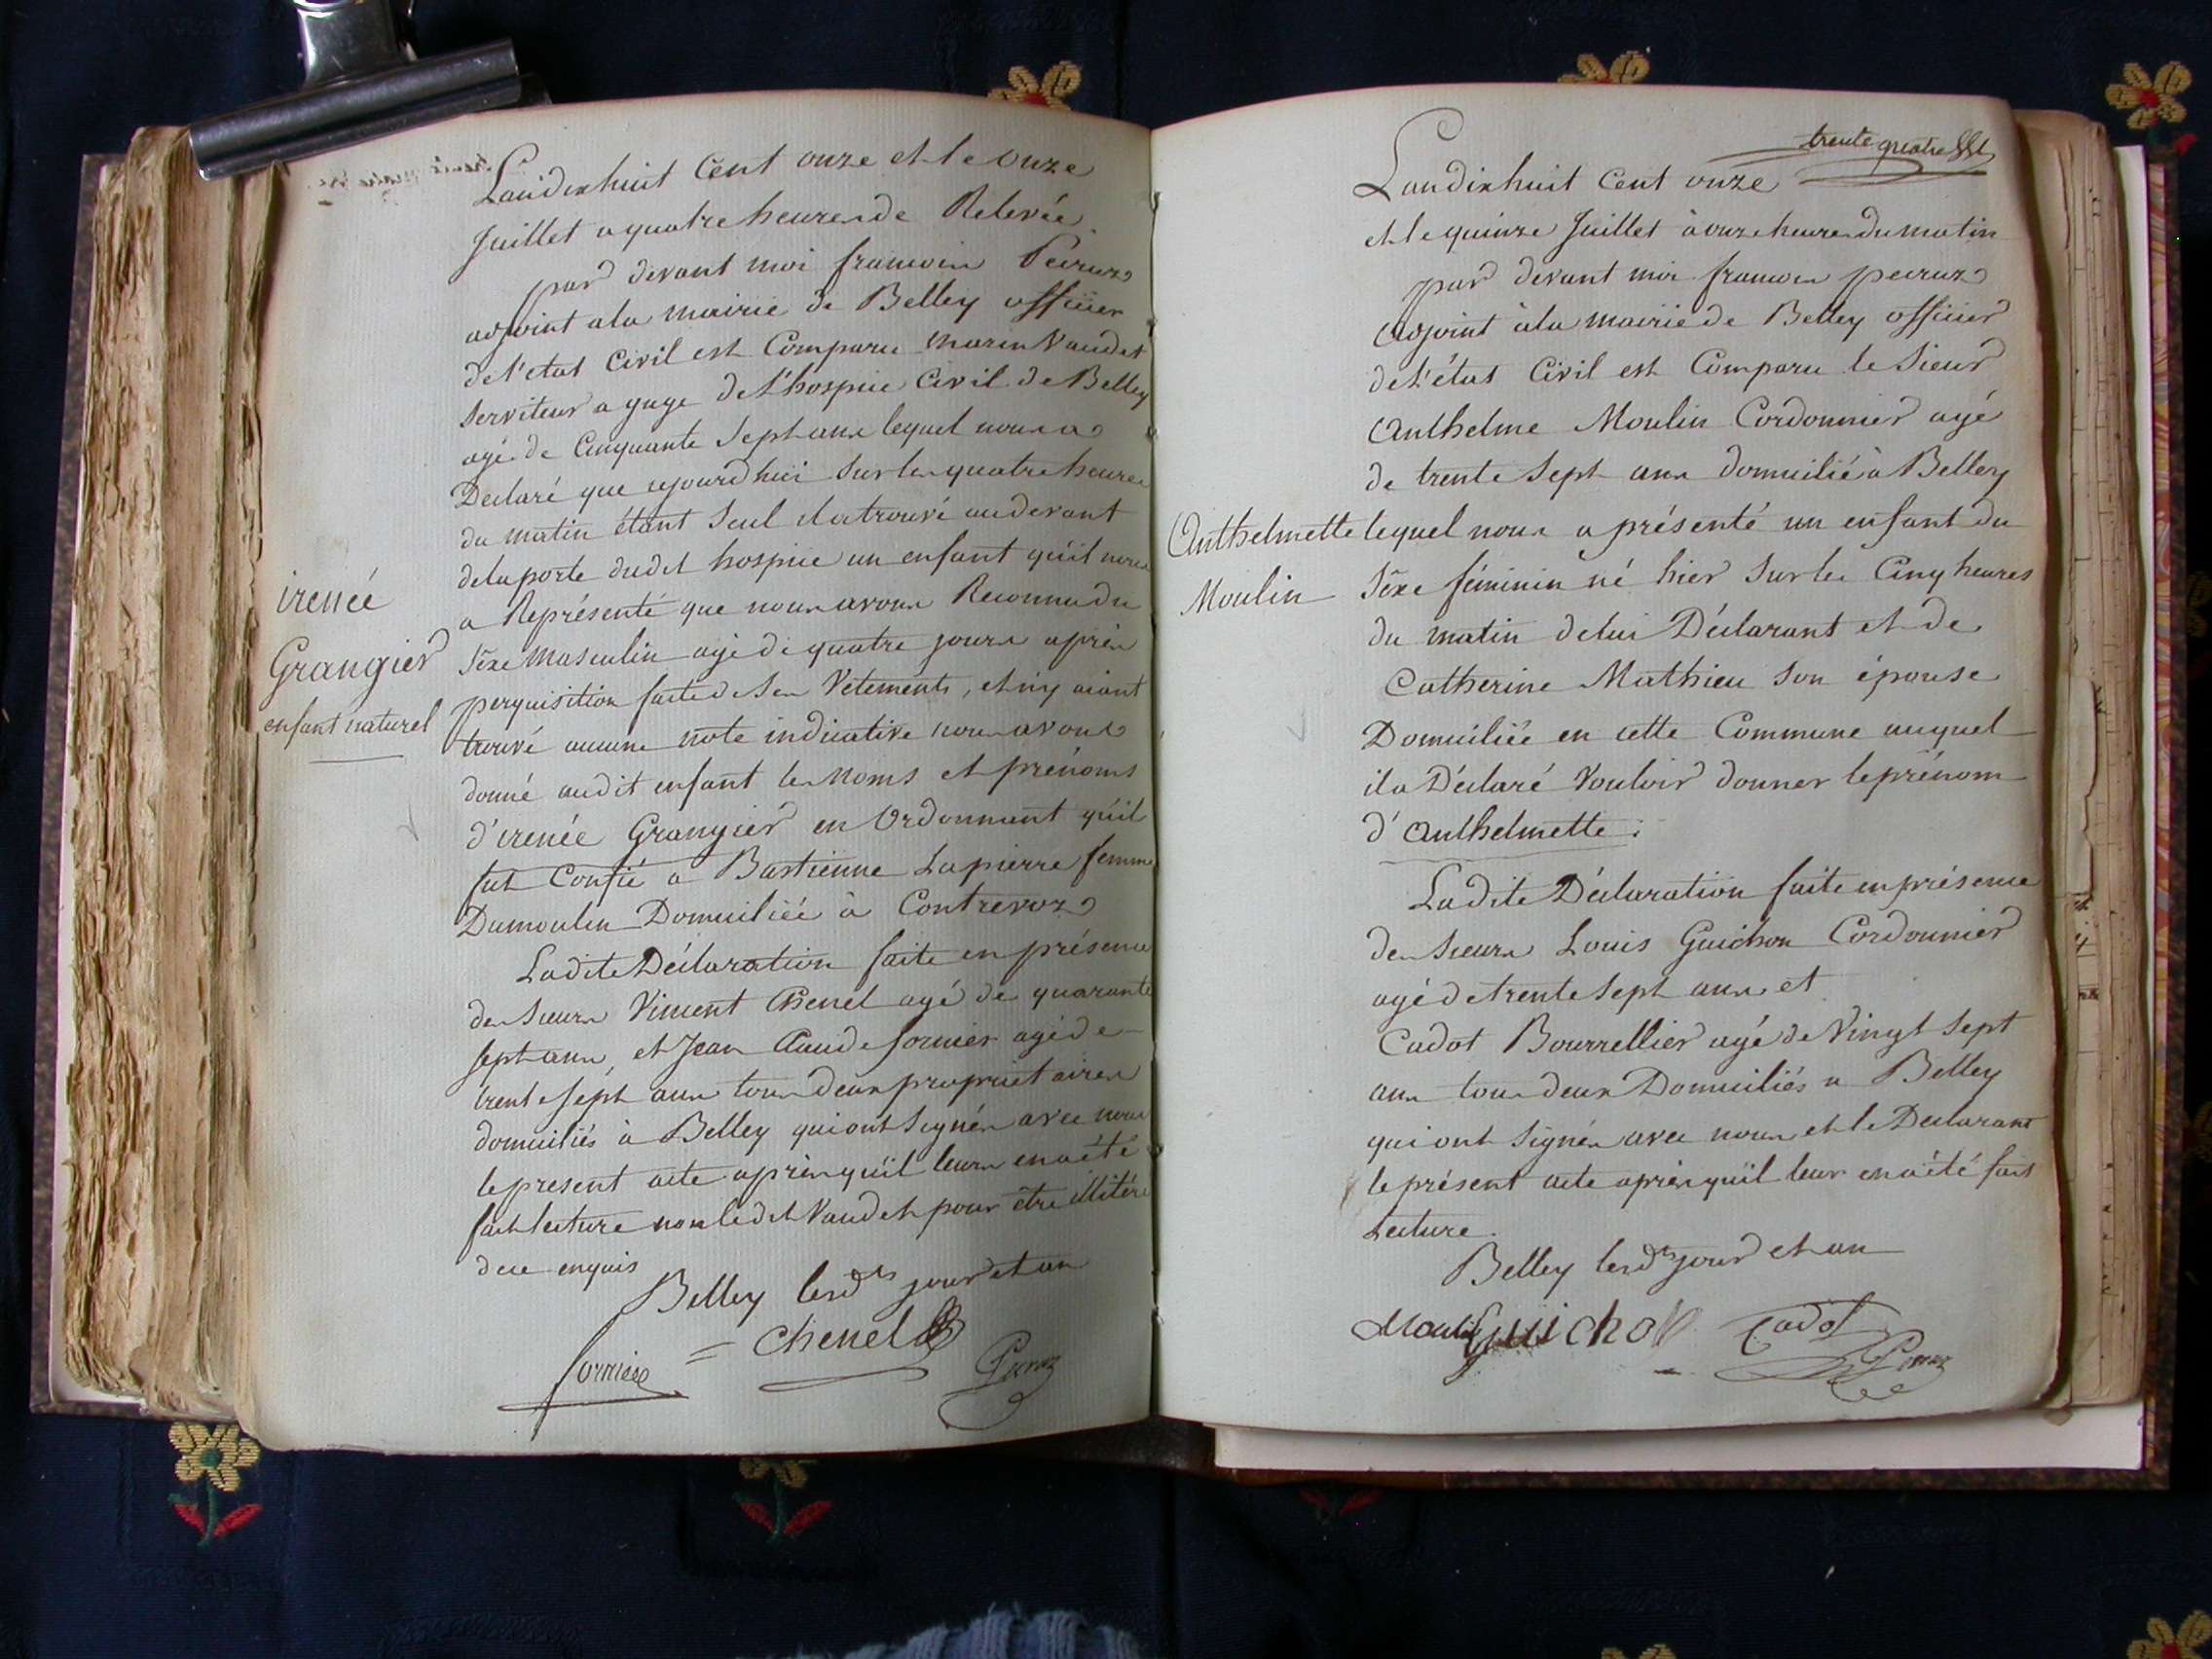 L'an dix huit Cent onze et le onze
Juillet a quatre heures de Relevée
par devant moi francois Peiruz
adjoint ala mairie de Belley officier
de l'etat Civil est Comparu marin Vaudet
serviteur a gage de l'hospice Civil de Belley
agé de Cinquante Sept ans lequel nous a
Declaré que cejourd'hui sur les quatre heures
du matin étant seul il a trouvé au devant
de la porte dudit hospice un enfant qu'il nous
irenée
a Représenté que nous avons Reconnu du
Grangier
sèxe masculin agé de quatre jours après
enfant naturel
perquisition faite de ses Vetements, et n'y aiant
trouvé aucune note indicative nous avons
donné audit enfant les noms et prénoms
d'irenée Grangier en Ordonnant qu'il
fut Confié a Bastienne Lapierre femme
Dumoulin Domiciliée à Contrevoz
Ladite Déclaration faite en présence
des sieurs Vincent Chenel agé de quarante
sept ans, et Jean Claude fornier agé de
trente sept ans tous deux propriétaires
domiciliés à Belley qui ont signés avec nous
le present acte après qu'il leurs en a été
fait lecture non ledit Vaudet pour être illitéré
de ce enquis
Belley lesdts jour et an
fornier chenel Peiruz
trente quatre
L'an dix huit Cent onze
et le quinze Juillet à onze heures du matin
par devant moi francois peiruz
adjoint à la mairie de Belley officier
de l'état Civil est Comparu le Sieur
Anthelme Moulin Cordonnier agé
de trente sept ans domicilié à Belley
Anthelmette lequel nous a présenté un enfant du
Moulin sèxe féminin né hier sur les Cinq heures
du matin de lui Déclarant et de
Catherine Mathieu son épouse
Domiciliée en cette Commune auquel
il a Déclaré Vouloir donner le prénom
d'Anthelmette.
Ladite Déclaration faite en présence
des sieurs Louis Guichon Cordonnier
agé de trente sept ans et
Cadot Bourrellier agé de Vingt sept
ans tous deux Domiciliés a Belley
qui ont signés avec nous et le Declarant
le présent acte après qu'il leur en a été fait
Lecture.
Belley lesdts jour et an
Moulin guichon Cadot
Peiruz